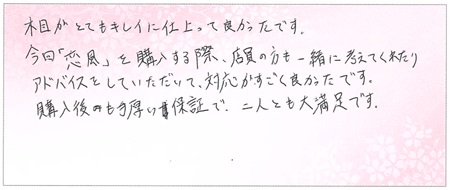 木目がとてもキレイに仕上って良かったです。
今回「恋風」を購入する際、店員の方も一緒に考えてくれたり
アドバイスをしていただいて、対応がすごく良かったです。
購入後も手厚い保証で、二人とも大満足です。